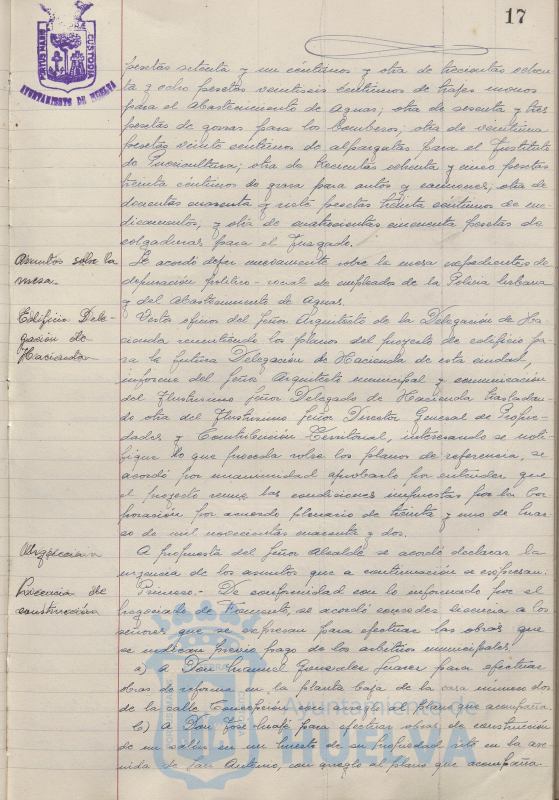 17
CUSTODIA
AYUNTAMIENTO DE HUELVA
pesetas setenta y un céntimos y otra de trescientas ochen-
ta y ocho pesetas veintiseis céntimos de trajes monos
para el Abastecimiento de Aguas; otra de sesenta y tres
pesetas de gorras para los Bomberos; otra de veintiuna
pesetas veinte céntimos de alpargatas para el Instituto
de Puericultura; otra de trescientas ochenta y cinco pesetas
treinta céntimos de grasa para autos y camiones; otra de
doscientas cuarenta y siete pesetas treinta céntimos de me-
dicamentos, y otra de cuatrocientas cincuenta pesetas de
colgaduras para el Juzgado.
Asuntos sobre la
mesa.
Se acordó dejar nuevamente sobre la mesa expedientes de
depuración político-social de empleados de la Policía Urbana
y del Abastecimiento de Aguas.
Edificio Dele-
gación de
Hacienda
Vistos oficios del Señor Arquitecto de la Delegación de Ha-
cienda remitiendo los planos del proyecto de edificio pa-
ra la futura Delegación de Hacienda de esta ciudad,
informe del Señor Arquitecto municipal y comunicación
del Ilustrisimo Señor Delegado de Hacienda trasladan-
do otra del Ilustrisimo Señor Director General de Propie-
dades y Contribución Territorial, interesando se noti-
fique lo que proceda sobre los planos de referencia, se
acordó por unanimidad aprobarlo por entender que
el proyecto reune las condiciones impuestas por la Cor-
poración por acuerdo plenario de treinta y uno de Mar-
zo de mil novecientos cuarenta y dos.
Urgencia
A propuesta del Señor Alcalde se acordó declarar la
urgencia de los asuntos que a continuación se expresan:
Licencia de
construcción
Primero.- De conformidad con lo informado por el
Negociado de Fomento, se acordó conceder licencia a los
señores que se expresan para efectuar las obras que
se indican previo pago de los arbitrios municipales:
a) A Don Manuel Gonzalez Suarez para efectuar
obras de reforma en la planta baja de la casa número dos
de la calle Concepción con arreglo al plano que acompaña.
b) A Don José para efectuar obras de construcción
de un salón en un huerto de su propiedad sito en la ave-
nida de San Antonio, con arreglo al plano que acompaña.
Ayuntamiento de
HUELVA